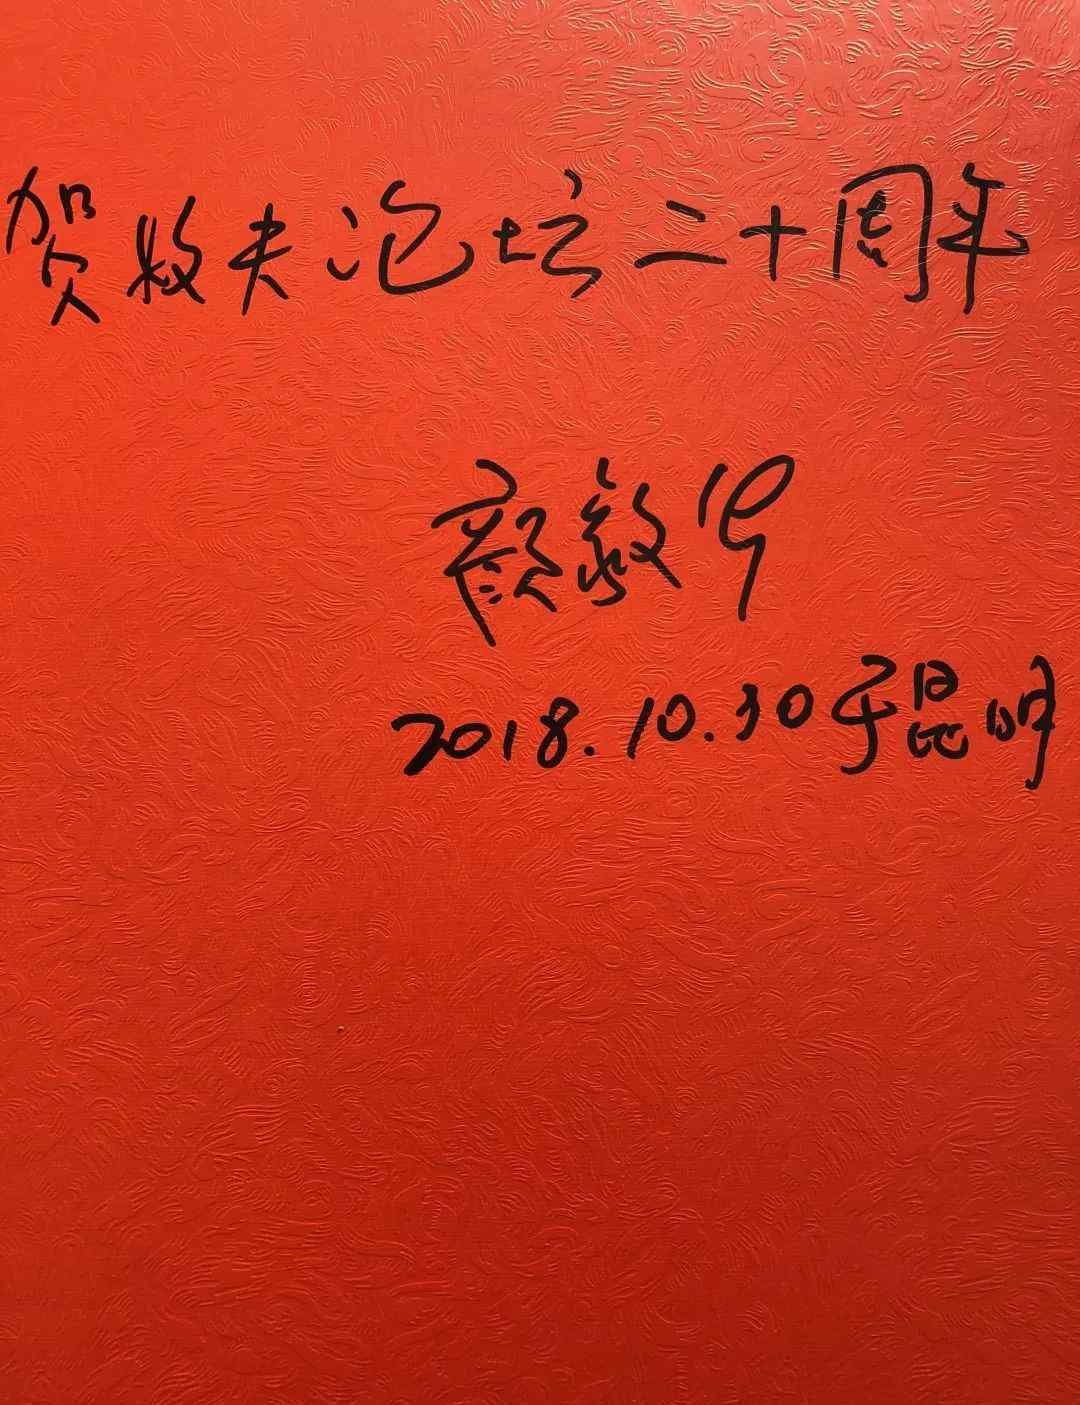 贺牧夫论坛二十周年
颜毅华
2018.10.30于昆明